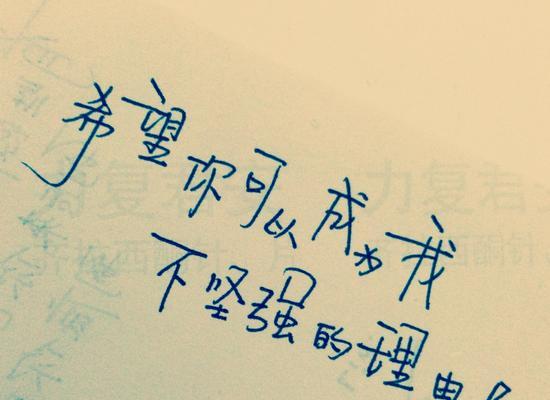 希望你可以成为我
不坚强的理由